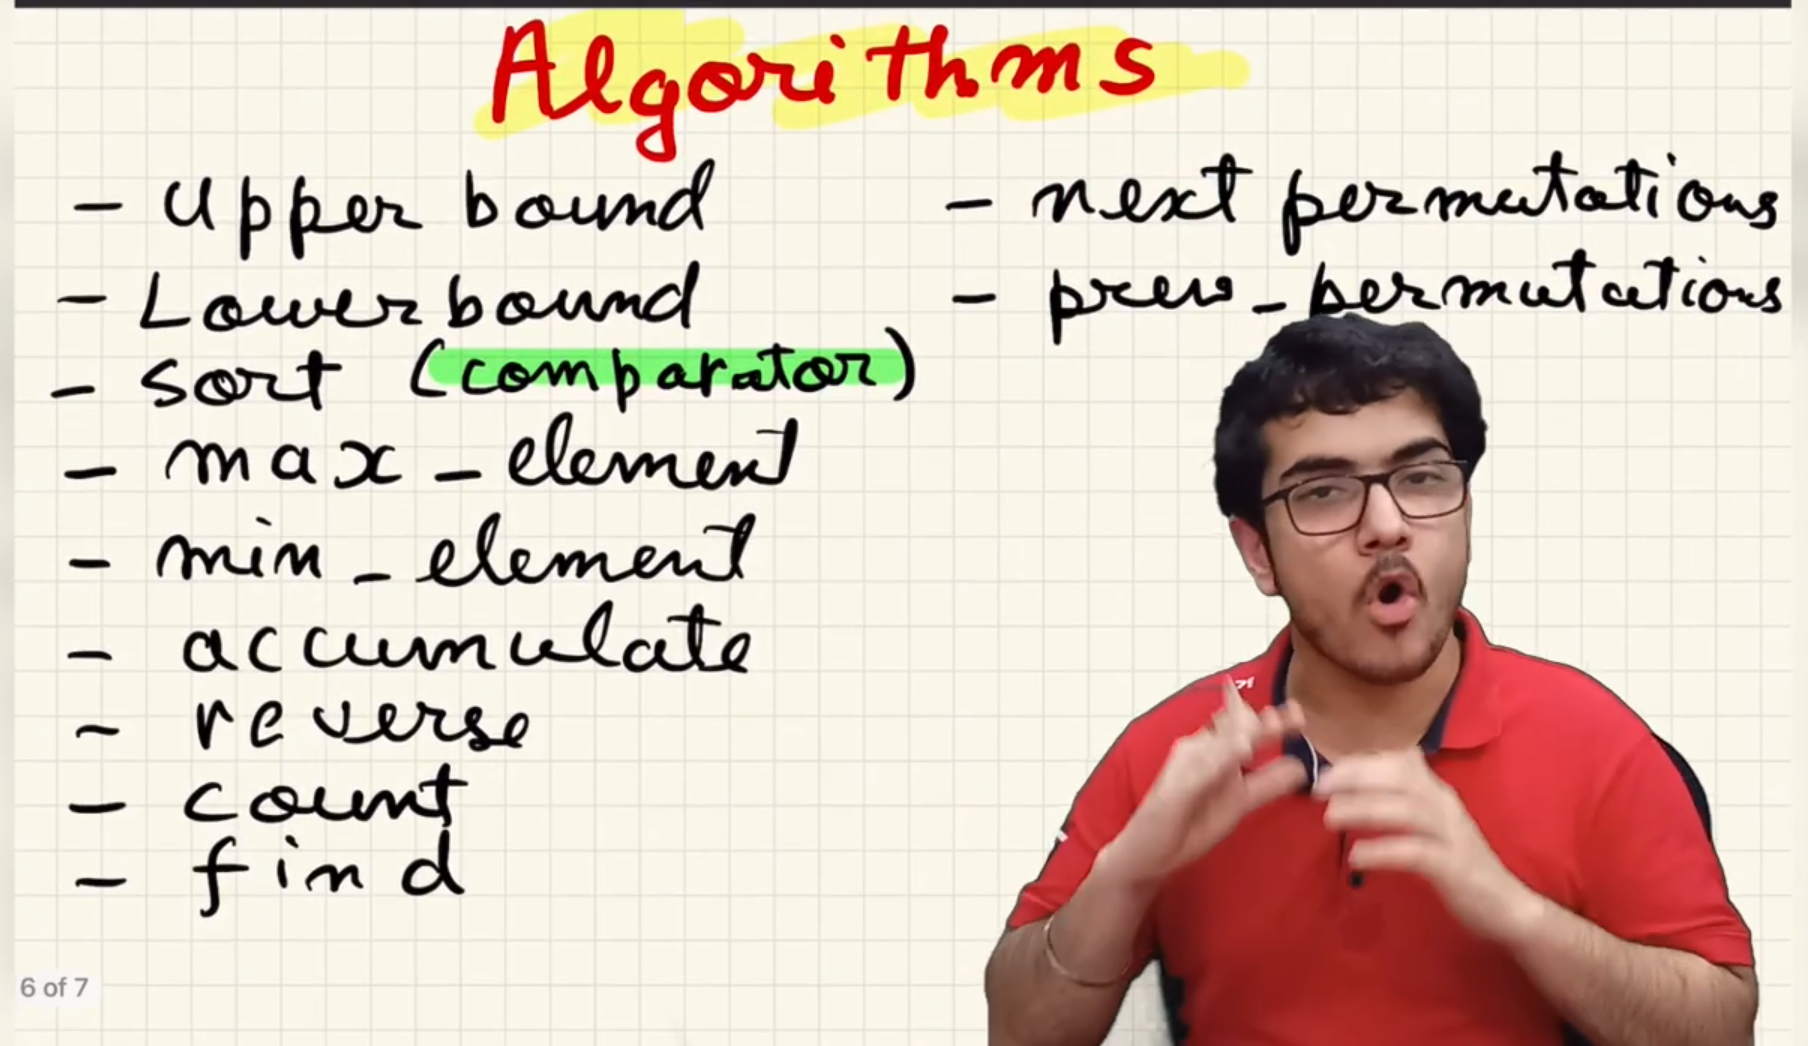 Algorithms
- Upper bound
- Lower bound
- Sort (comparator)
- max_element
- min_element
- accumulate
- reverse
- count
- find
- next permutations
- prev_permutations
6 of 7